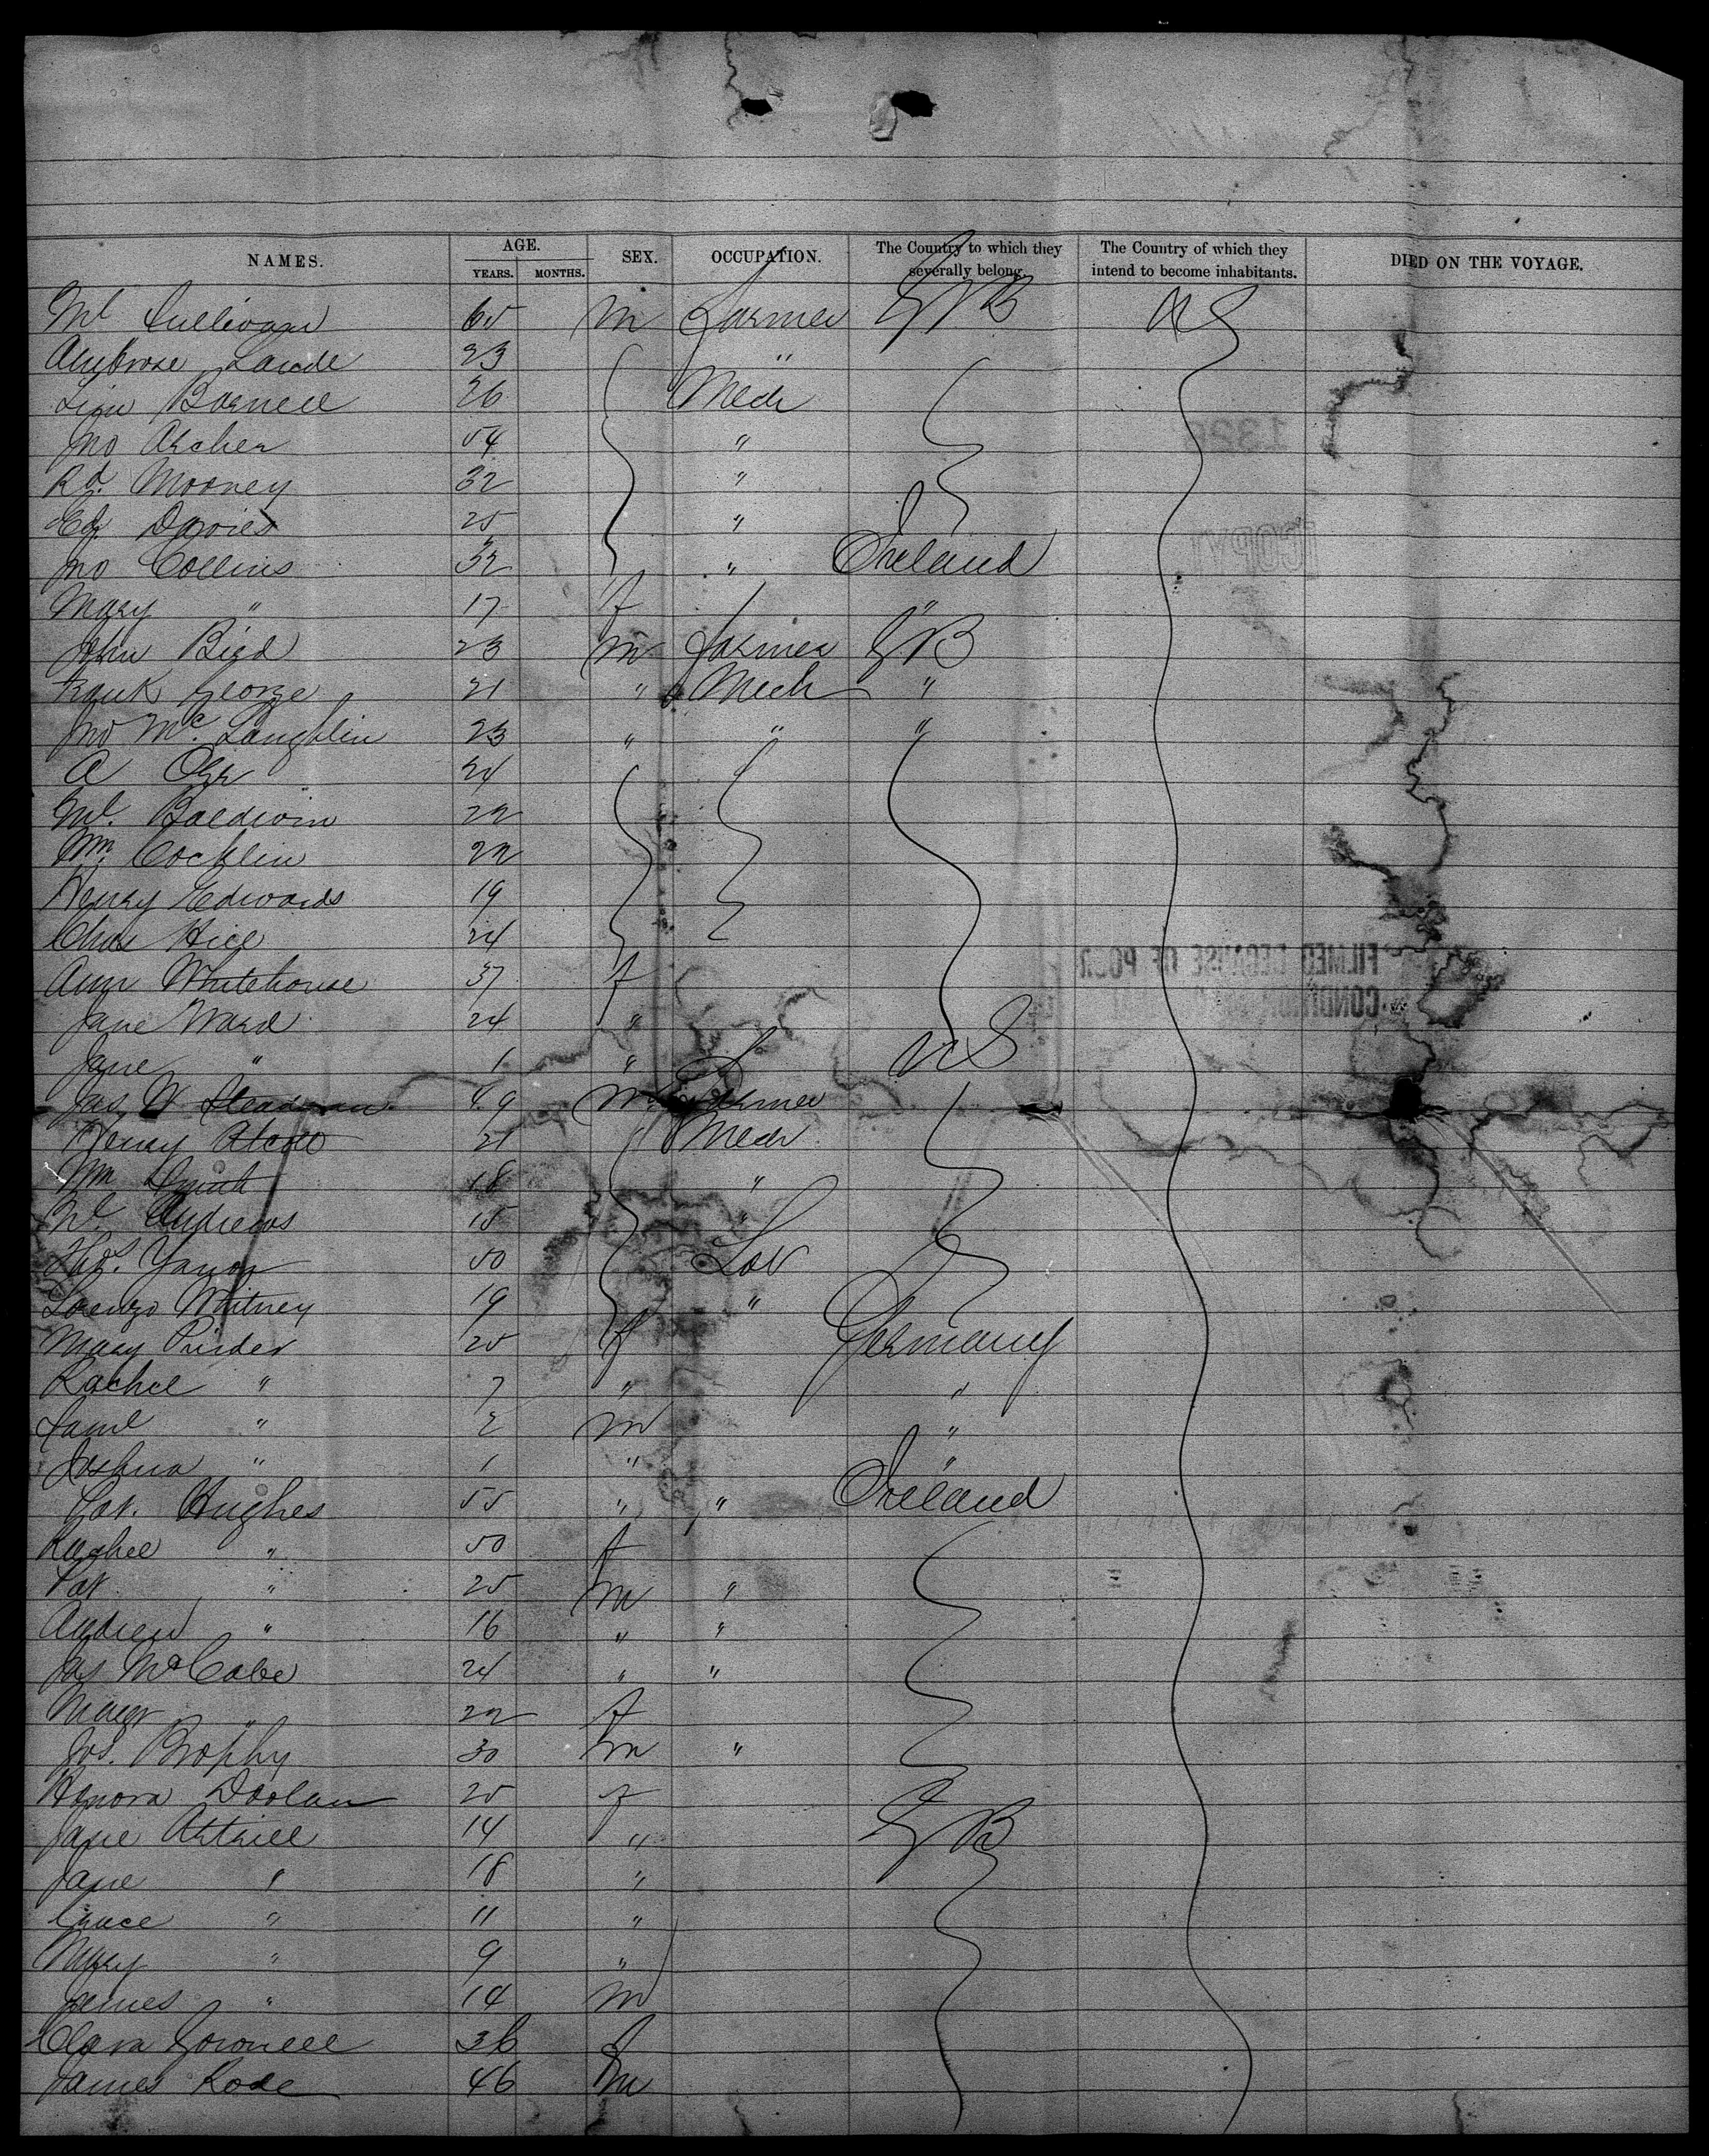 NAMES. AGE. YEARS. MONTHS. SEX. OCCUPATION. The Country to which they severally belong. The Country of which they intend to become inhabitants. DIED ON THE VOYAGE.
Ml Sullivan 65 m Farmer GB US
Ambrose 23 "
Barnell 26 Mech
Jno Archer 54 "
Rd. Mooney 32 "
Ed. Davies 25 "
Jno Collins 32 " Ireland
Mary " 17 f "
John Bird 23 m Farmer GB
Frank George 21 " Mech "
Jno McLaughlin 23 " " "
A Orr 24
Ml. Baldwin 22
Wm Cocklin 22
Henry Edwards 19
Chas Hill 24
Ann Whitehouse 37 f
Jane Ward 24 "
Jane " 1 " US
Jas. W Steadman 49 m Farmer
Henry 21 Mech
Wm Smith 18 "
Ml. Andrews 15 "
Thos. 50 Lab
Lorenzo Whitney 19 "
Mary 25 f Germany
Rachel " 7 " "
Saml " 2 m "
Joshua " 1 " "
Pat. Hughes 55 " " Ireland
Rachel " 50 f
Pat " 25 m "
Andrew " 16 " "
Jas McCabe 24 " "
Mary " 22 f
Jos. Brophy 30 m "
Honora Doolan 25 f
Jane Attrill 14 " GB
Jane " 18 "
Grace " 11 "
Mary " 9 "
James " 14 m
Clara 36 f
James Rode 46 m
1326
COPY
FILMED BECAUSE OF POOR
CONDITION OF ORIGINAL